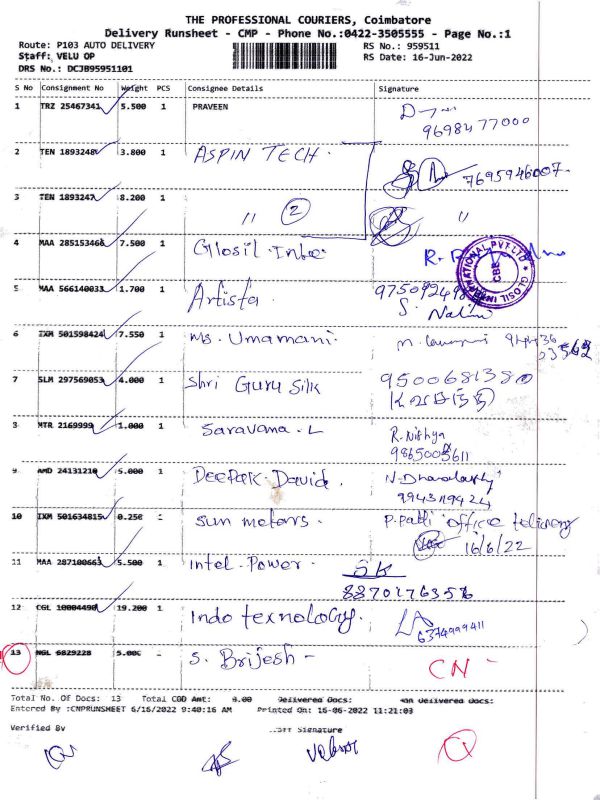 THE PROFESSIONAL COURIERS, Coimbatore
Delivery Runsheet - CMP - Phone No.:0422-3505555 - Page No.:1
Route: P103 AUTO DELIVERY RS No.: 959511
Staff: VELU OP RS Date: 16-Jun-2022
DRS No.: DCJB95951101
S No Consignment No Weight PCS Consignee Details Signature
1 TRZ 25467341 5.500 1 PRAVEEN
9698477000
2 TEN 1893248 3.800 1 ASPIN TECH. 7695946007-
3 TEN 1893247 8.200 1 " 2 "
4 MAA 285153466 7.500 1 Glosil. Inte
GLOSIL INTERNATIONAL PVT LTD CBE
5 MAA 566140033 1.700 1 Artista
S. Nalini
6 IXM 501598424 7.550 1 Ms. Umamani.
7 SLM 297569053 4.000 1 Shri Guru Silk 9500681380
8 MTR 2169999 1.000 1 Saravana. L R. Nithya
9865005611
9 AMD 24131210 5.000 1 Deepak. David.
9943119424
10 IXM 501634815 0.250 - Sun motors. office
16/6/22
11 MAA 287100663 5.500 1 Intel. Power. SK
12 CGL 10004490 19.200 1 Indo texnology.
6374999411
13 NGL 6829228 5.000 - S. Brijesh - CN -
Total No. Of Docs: 13 Total COD Amt: 0.00 Delivered Docs: Delivered Docs:
Entered By :CNPRUNSHEET 6/16/2022 9:40:16 AM Printed On: 16-06-2022 11:21:03
Verified By Signature